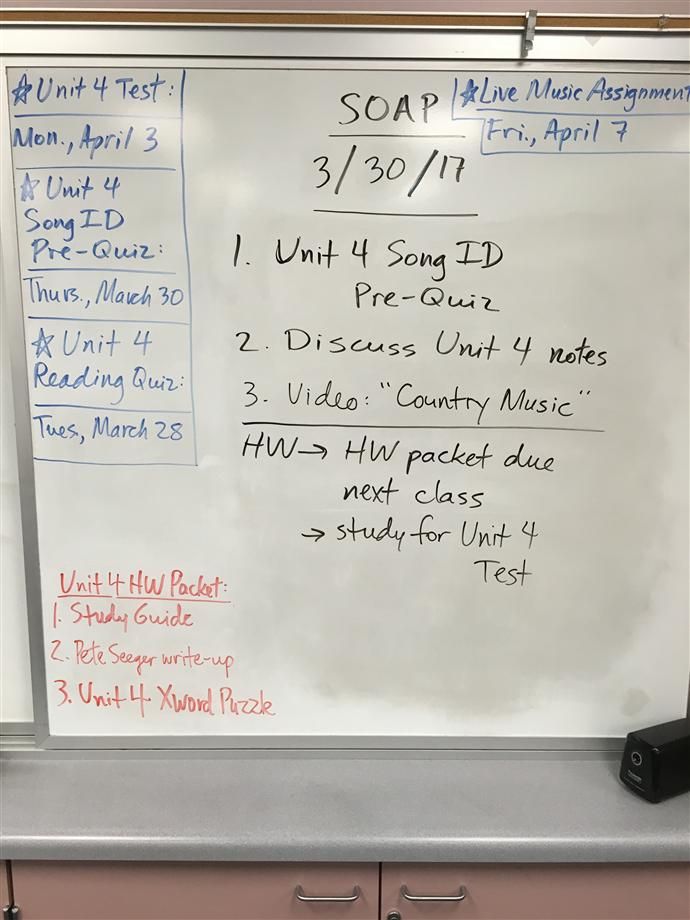 ☆Unit 4 Test:
Mon., April 3
☆ Unit 4
Song ID
Pre-Quiz:
Thurs., March 30
☆ Unit 4
Reading Quiz:
Tues, March 28
SOAP
3/30/17
☆Live Music Assignment
Fri., April 7
1. Unit 4 Song ID
Pre-Quiz
2. Discuss Unit 4 notes
3. Video: "Country Music"
HW→ HW packet due
next class
→ study for Unit 4
Test
Unit 4 HW Packet:
1. Study Guide
2. Pete Seeger write-up
3. Unit 4 Xword Puzzle